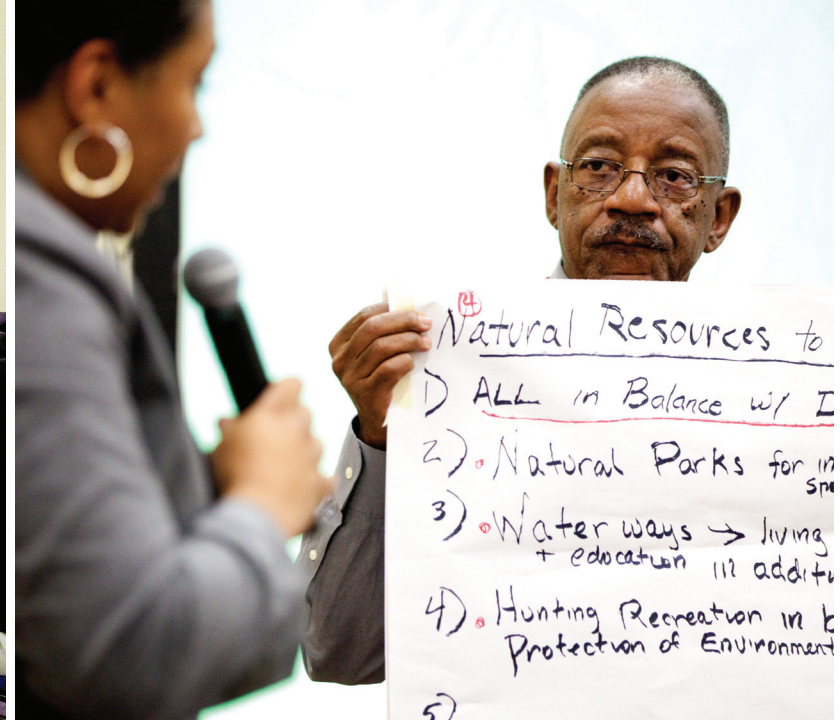 4
Natural Resources to
1) ALL in Balance w/
2) • Natural Parks for
3) • Water ways → living
+ edocation in
4) • Hunting Recreation in
Protection of Environment
5)